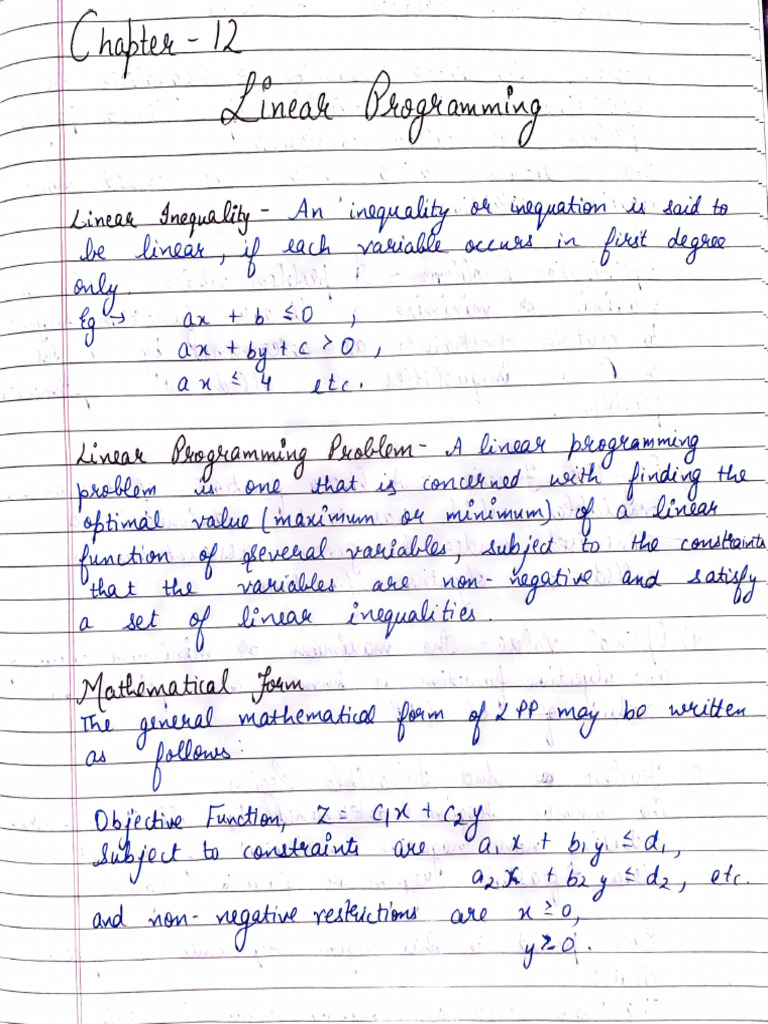 Chapter - 12
Linear Programming
Linear Inequality - An inequality or inequation is said to
be linear, if each variable occurs in first degree
only.
Eg → ax + b ≤ 0 ,
ax + by + c > 0 ,
ax ≤ 4 etc.
Linear Programming Problem - A linear programming
problem is one that is concerned with finding the
optimal value (maximum or minimum) of a linear
function of several variables, subject to the constraints
that the variables are non-negative and satisfy
a set of linear inequalities.
Mathematical Form
The general mathematical form of LPP may be written
as follows:
Objective Function, Z = c₁x + c₂y
Subject to constraints are a₁x + b₁y ≤ d₁,
a₂x + b₂y ≤ d₂, etc.
and non-negative restrictions are x ≥ 0,
y ≥ 0.